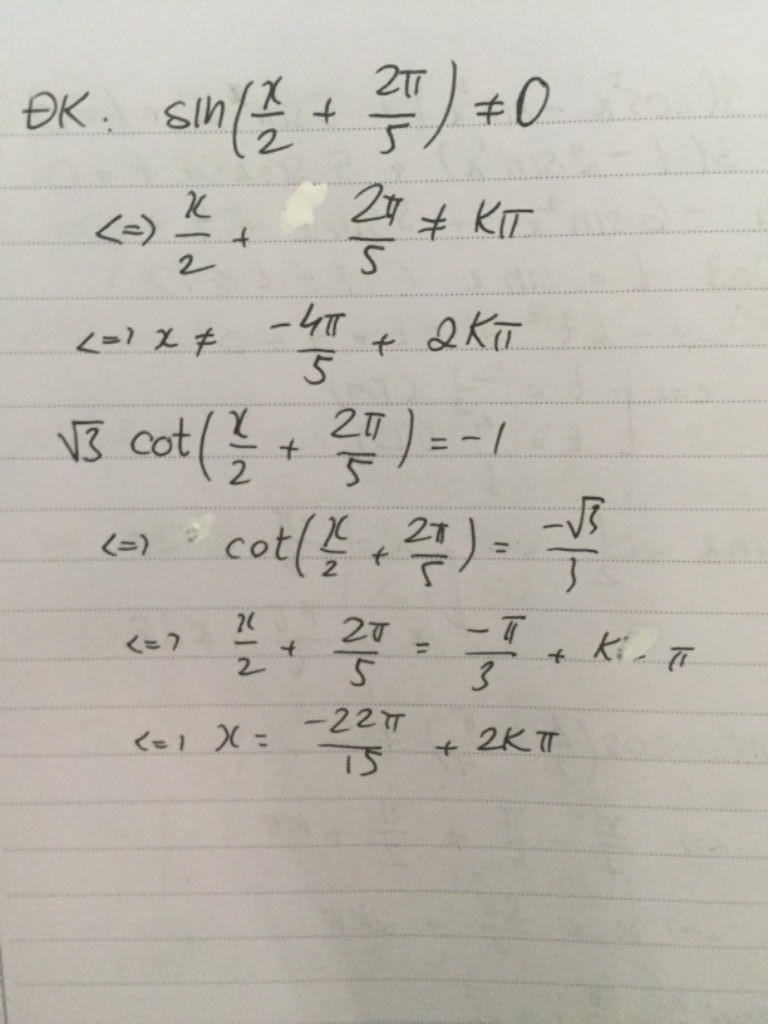 ĐK: sin(x/2 + 2π/5) ≠ 0
<=> x/2 + 2π/5 ≠ Kπ
<=> x ≠ -4π/5 + 2Kπ
√3 cot(x/2 + 2π/5) = -1
<=> cot(x/2 + 2π/5) = -√3/3
<=> x/2 + 2π/5 = -π/3 + K π
<=> x = -22π/15 + 2Kπ